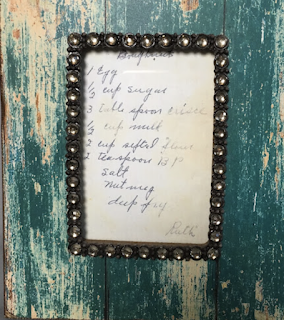 1 Egg
1/2 cup sugar
3 table spoon
1/2 cup milk
2 cup sifted flour
2 teaspoon
salt
nutmeg
deep fry
Ruth